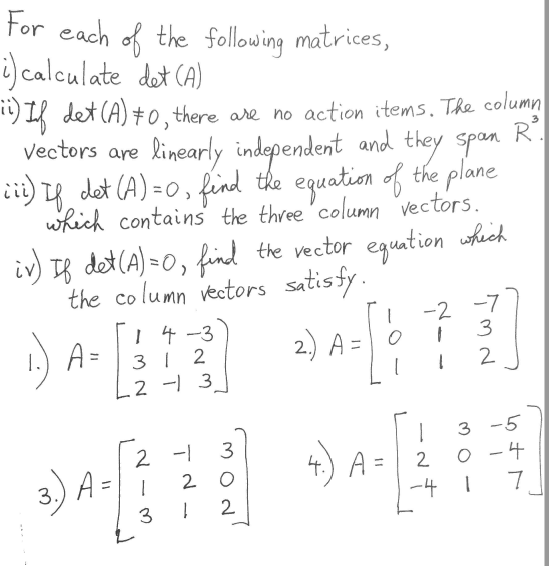 For each of the following matrices,
i) calculate det (A)
ii) If det (A) ≠ 0, there are no action items. The column
vectors are linearly independent and they span R³.
iii) If det (A) = 0, find the equation of the plane
which contains the three column vectors.
iv) If det (A) = 0, find the vector equation which
the column vectors satisfy.
1.) A = [1 4 -3
3 1 2
2 -1 3]
2.) A = [1 -2 -7
0 1 3
1 1 2]
3.) A = [2 -1 3
1 2 0
3 1 2]
4.) A = [1 3 -5
2 0 -4
-4 1 7]